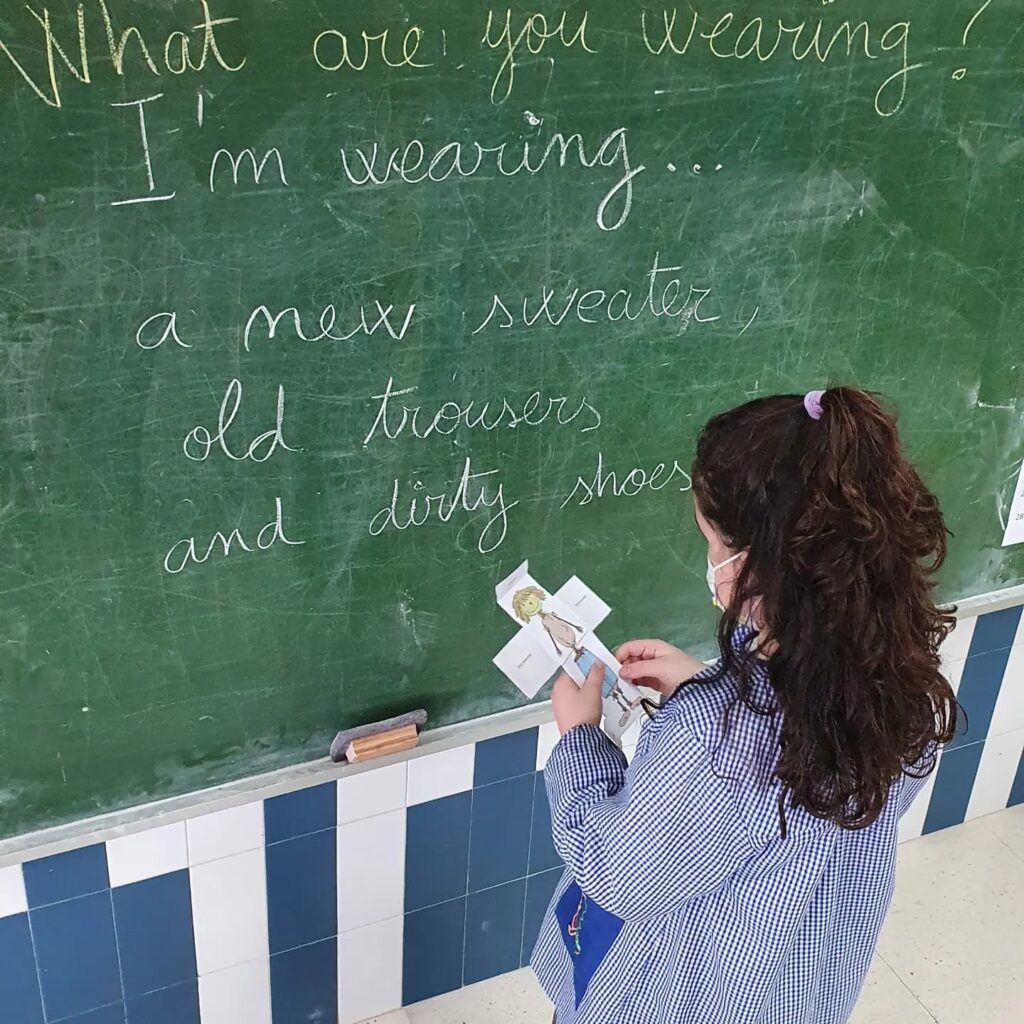 What are you wearing?
I'm wearing...
a new sweater,
old trousers
and dirty shoes
28